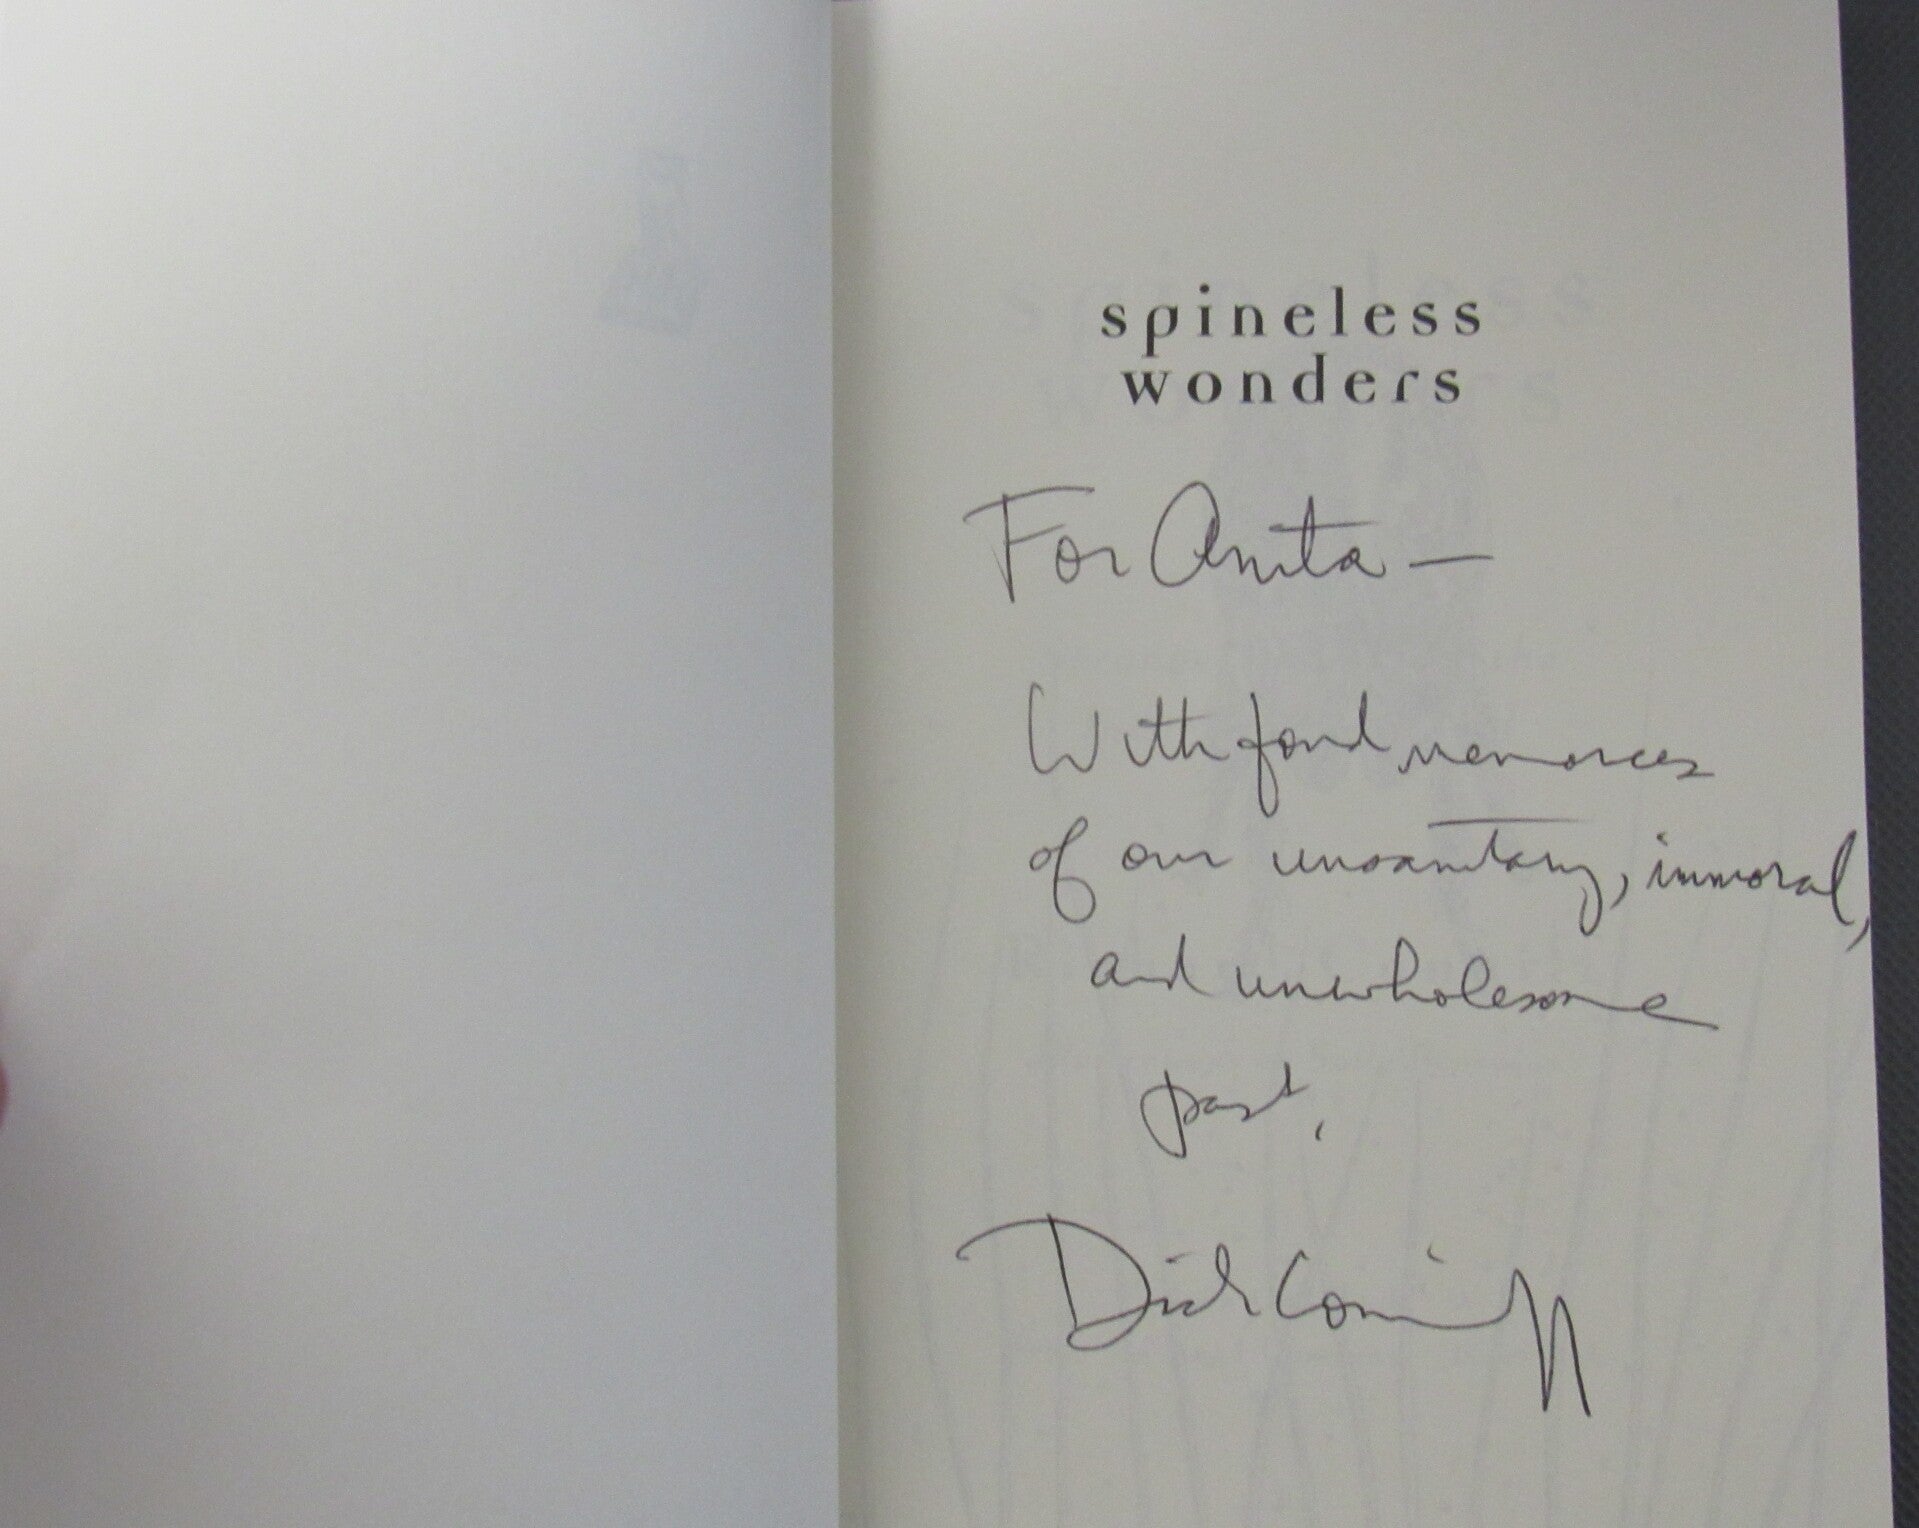 spineless
wonders
For Anita —
With fond memories
of our unsanitary, immoral,
and unwholesome
past,
Dick Coniff